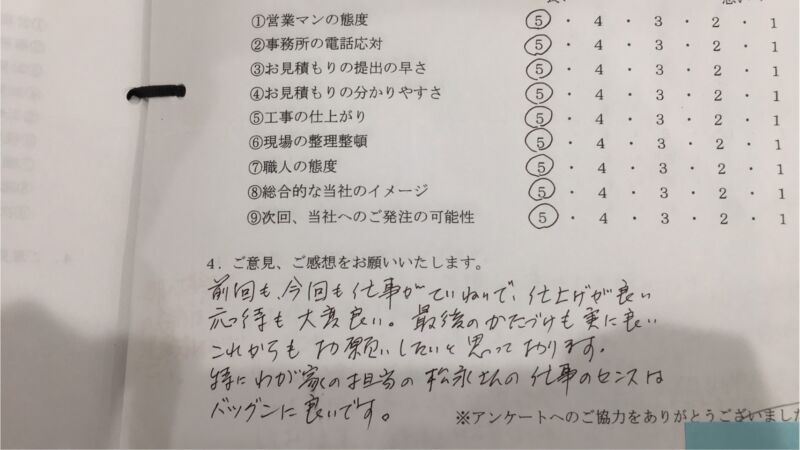 ①営業マンの態度 ⑤ ・ 4 ・ 3 ・ 2 ・ 1
②事務所の電話応対 ⑤ ・ 4 ・ 3 ・ 2 ・ 1
③お見積もりの提出の早さ ⑤ ・ 4 ・ 3 ・ 2 ・ 1
④お見積もりの分かりやすさ ⑤ ・ 4 ・ 3 ・ 2 ・ 1
⑤工事の仕上がり ⑤ ・ 4 ・ 3 ・ 2 ・ 1
⑥現場の整理整頓 ⑤ ・ 4 ・ 3 ・ 2 ・ 1
⑦職人の態度 ⑤ ・ 4 ・ 3 ・ 2 ・ 1
⑧総合的な当社のイメージ ⑤ ・ 4 ・ 3 ・ 2 ・ 1
⑨次回、当社へのご発注の可能性 ⑤ ・ 4 ・ 3 ・ 2 ・ 1
4．ご意見、ご感想をお願いいたします。
前回も、今回も仕事がていねいで、仕上げが良い
応待も大変良い。最後のかたづけも実に良い
これからもお願いしたいと思っております。
特にわが家の担当の松永さんの仕事のセンスは
バツグンに良いです。
※アンケートへのご協力をありがとうございました